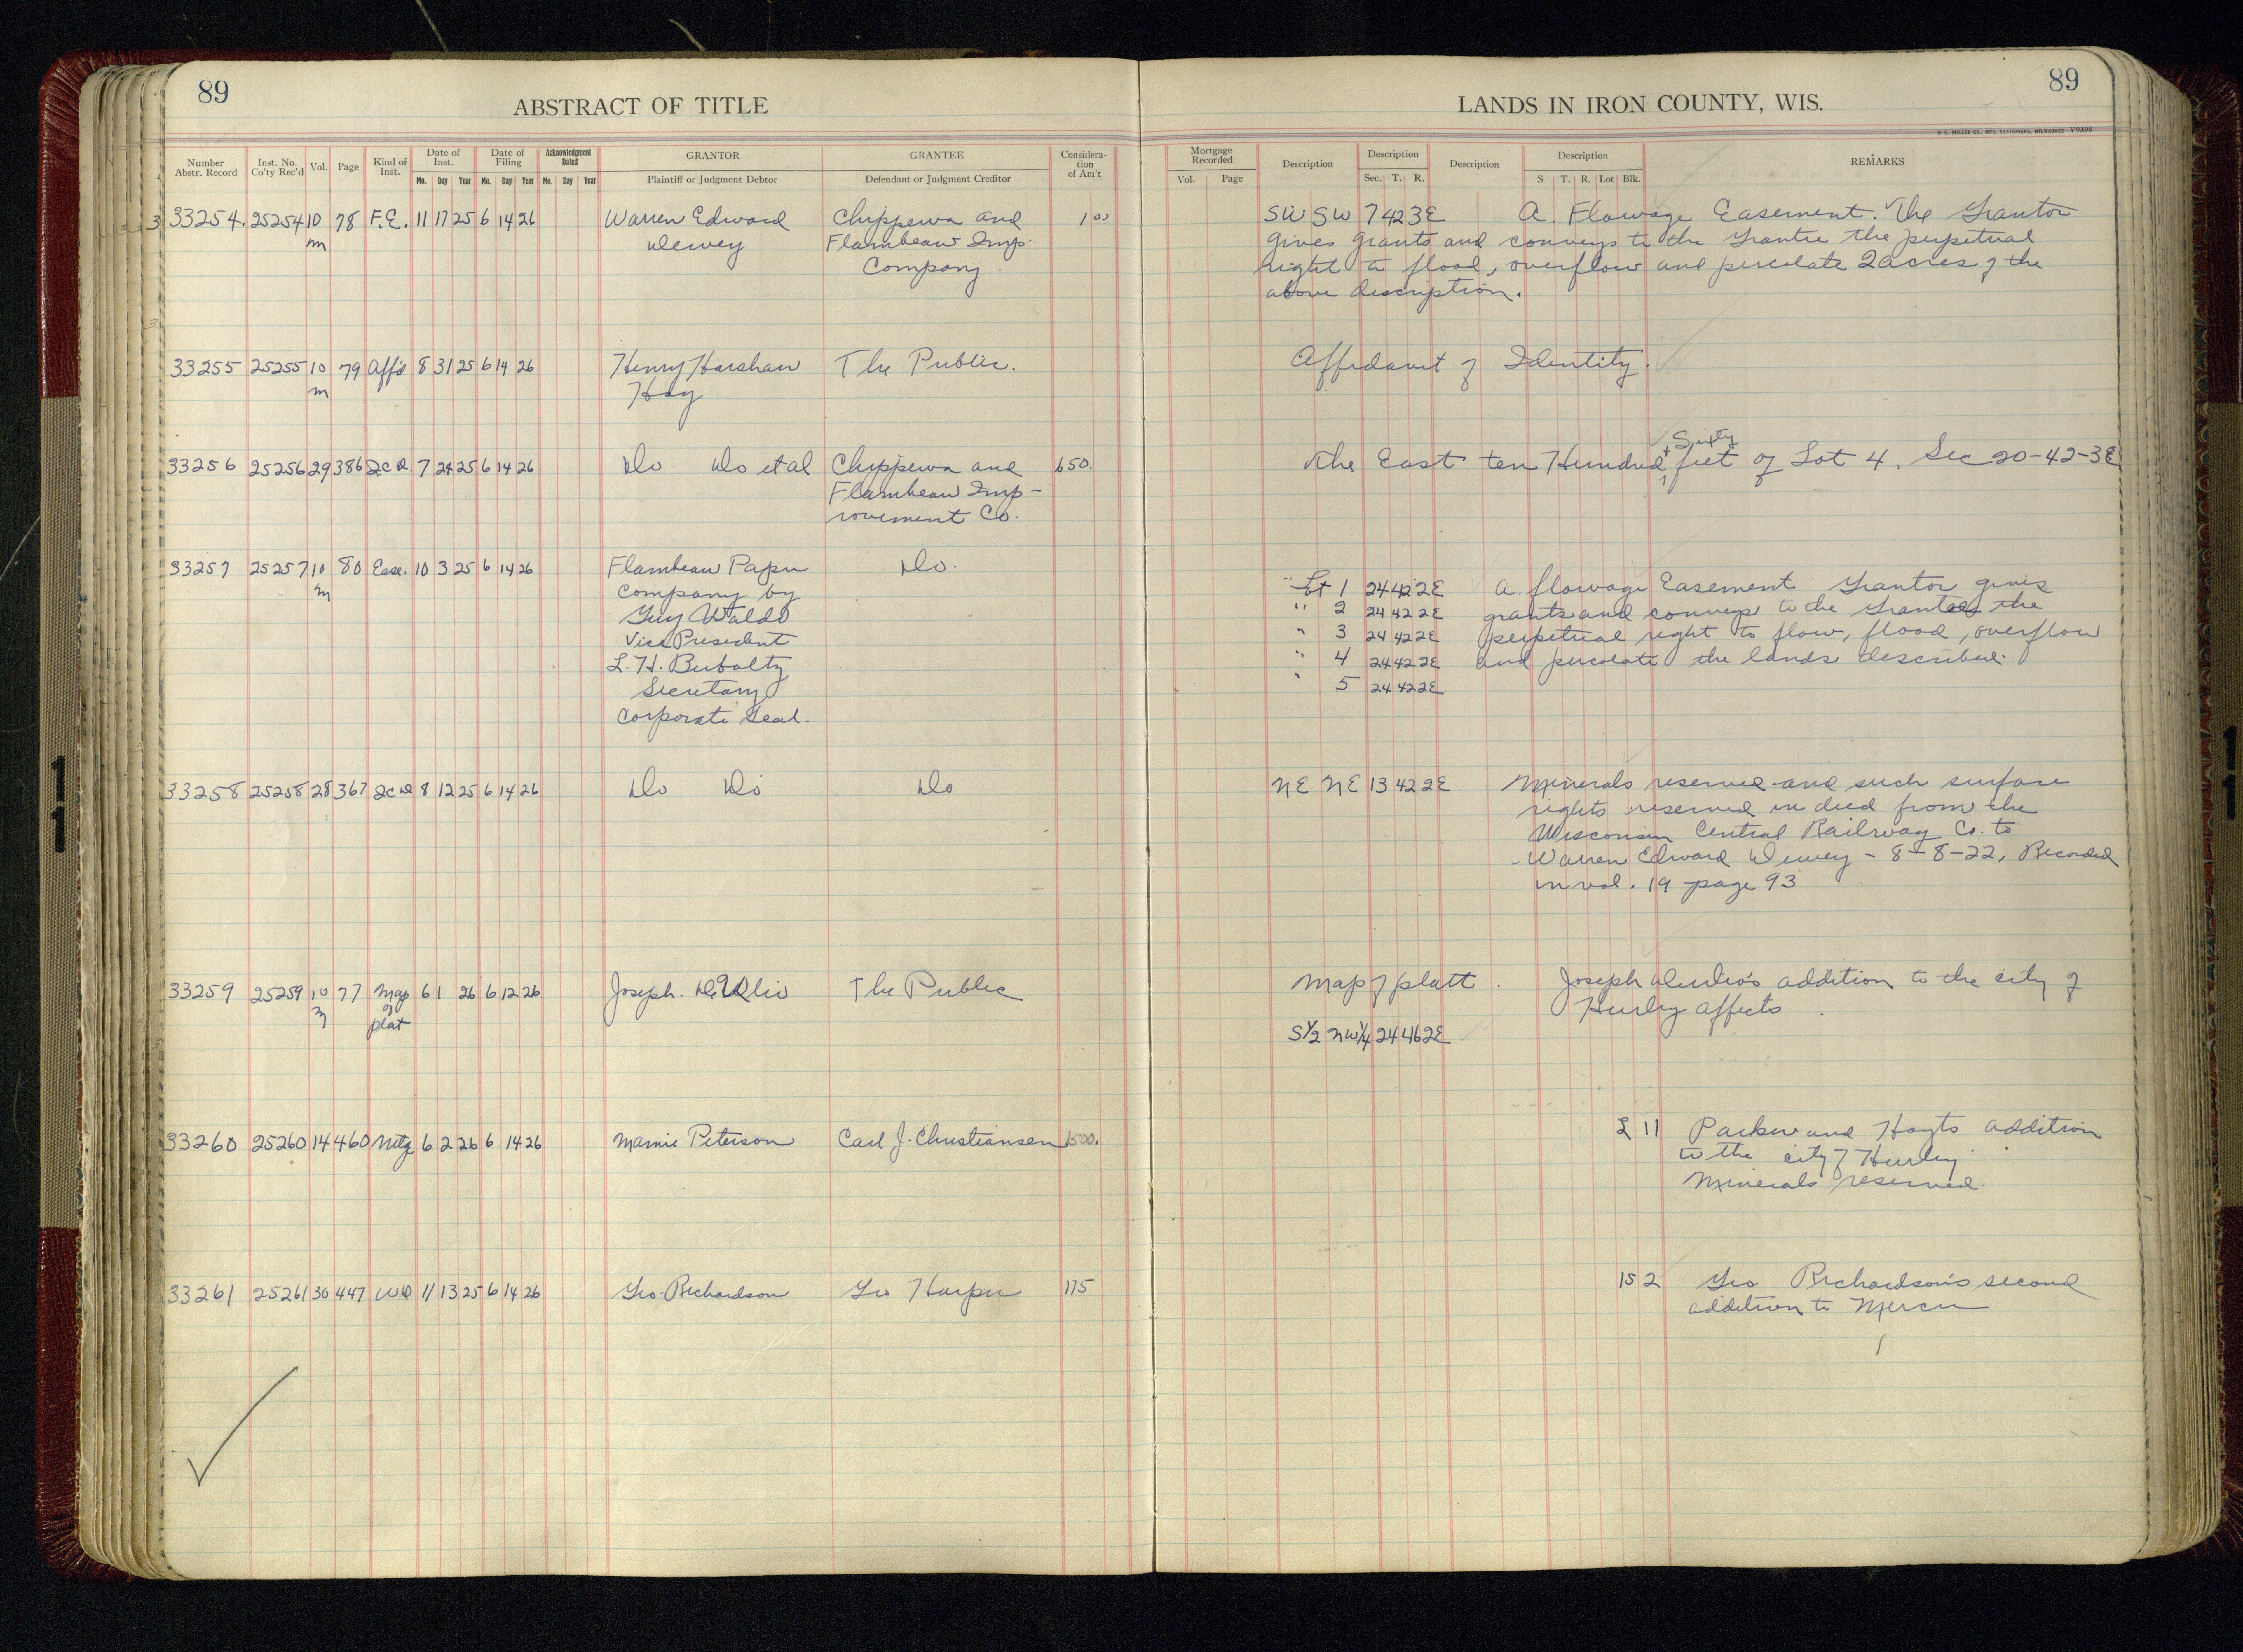 89
ABSTRACT OF TITLE
Number Abstr. Record | Inst. No. Co'ty Rec'd | Vol. | Page | Kind of Inst. | Date of Inst. Mo. Day Year | Date of Filing Mo. Day Year | Acknowledgment Dated Mo. Day Year | GRANTOR Plaintiff or Judgment Debtor | GRANTEE Defendant or Judgment Creditor | Considera-tion of Am't
33254. 25254 10 78 F.E. 11 17 25 6 14 26 Warren Edward Chippewa and 1 00
m Dewey Flambeau Imp.
Company
33255 25255 10 79 Aff'd 8 31 25 6 14 26 Henry Harshaw The Public.
m Hay
33256 25256 29 386 2c D. 7 24 25 6 14 26 Do. Do et al Chippewa and 650.
Flambeau Imp-
rovement Co.
33257 25257 10 80 Ease. 10 3 25 6 14 26 Flambeau Paper Do.
m Company by
Guy Waldo
Vice President
L. H. Buboltz
Secretary
Corporate Seal.
33258 25258 28 367 2c D 8 12 25 6 14 26 Do Do Do
33259 25259 10 77 Map 6 1 26 6 12 26 Joseph. The Public
m of
plat
33260 25260 14 460 Mtg 6 2 26 6 14 26 Mamie Peterson Carl J. Christiansen 1500.
33261 25261 30 447 WD 11 13 25 6 14 26 Geo. Richardson Geo Harper 175
89
LANDS IN IRON COUNTY, WIS.
H. C. MILLER CO., MFG. STATIONERS, MILWAUKEE V9398
Mortgage Recorded Vol. Page | Description | Description Sec. T. R. | Description | Description S T. R. Lot Blk. | REMARKS
SW SW 7 42 3E A. Flowage Easement. The Grantor
gives grants and conveys to the Grantee the perpetual
right to flood, overflow and percolate 2 acres of the
above description.
Affidavit of Identity.
Sixty
The East ten Hundred + feet of Lot 4. Sec 20-42-3E
Lot 1 24 42 2E A. flowage Easement Grantor gives
" 2 24 42 2E grants and conveys to the Grantee the
" 3 24 42 2E perpetual right to flow, flood, overflow
" 4 24 42 2E and percolate the lands described.
" 5 24 42 2E
NE NE 13 42 2E Minerals reserved and such surface
rights reserved in deed from the
Wisconsin Central Railway Co. to
Warren Edward Dewey - 8-8-22, Recorded
in vol. 19 page 93
Map of platt. Joseph addition to the city of
Hurley affects
S½ NW¼ 24 46 2E
L 11 Parker and Hoyts addition
to the city of Hurley
Minerals reserved
15 2 Geo Richardson's second
addition to Mercer